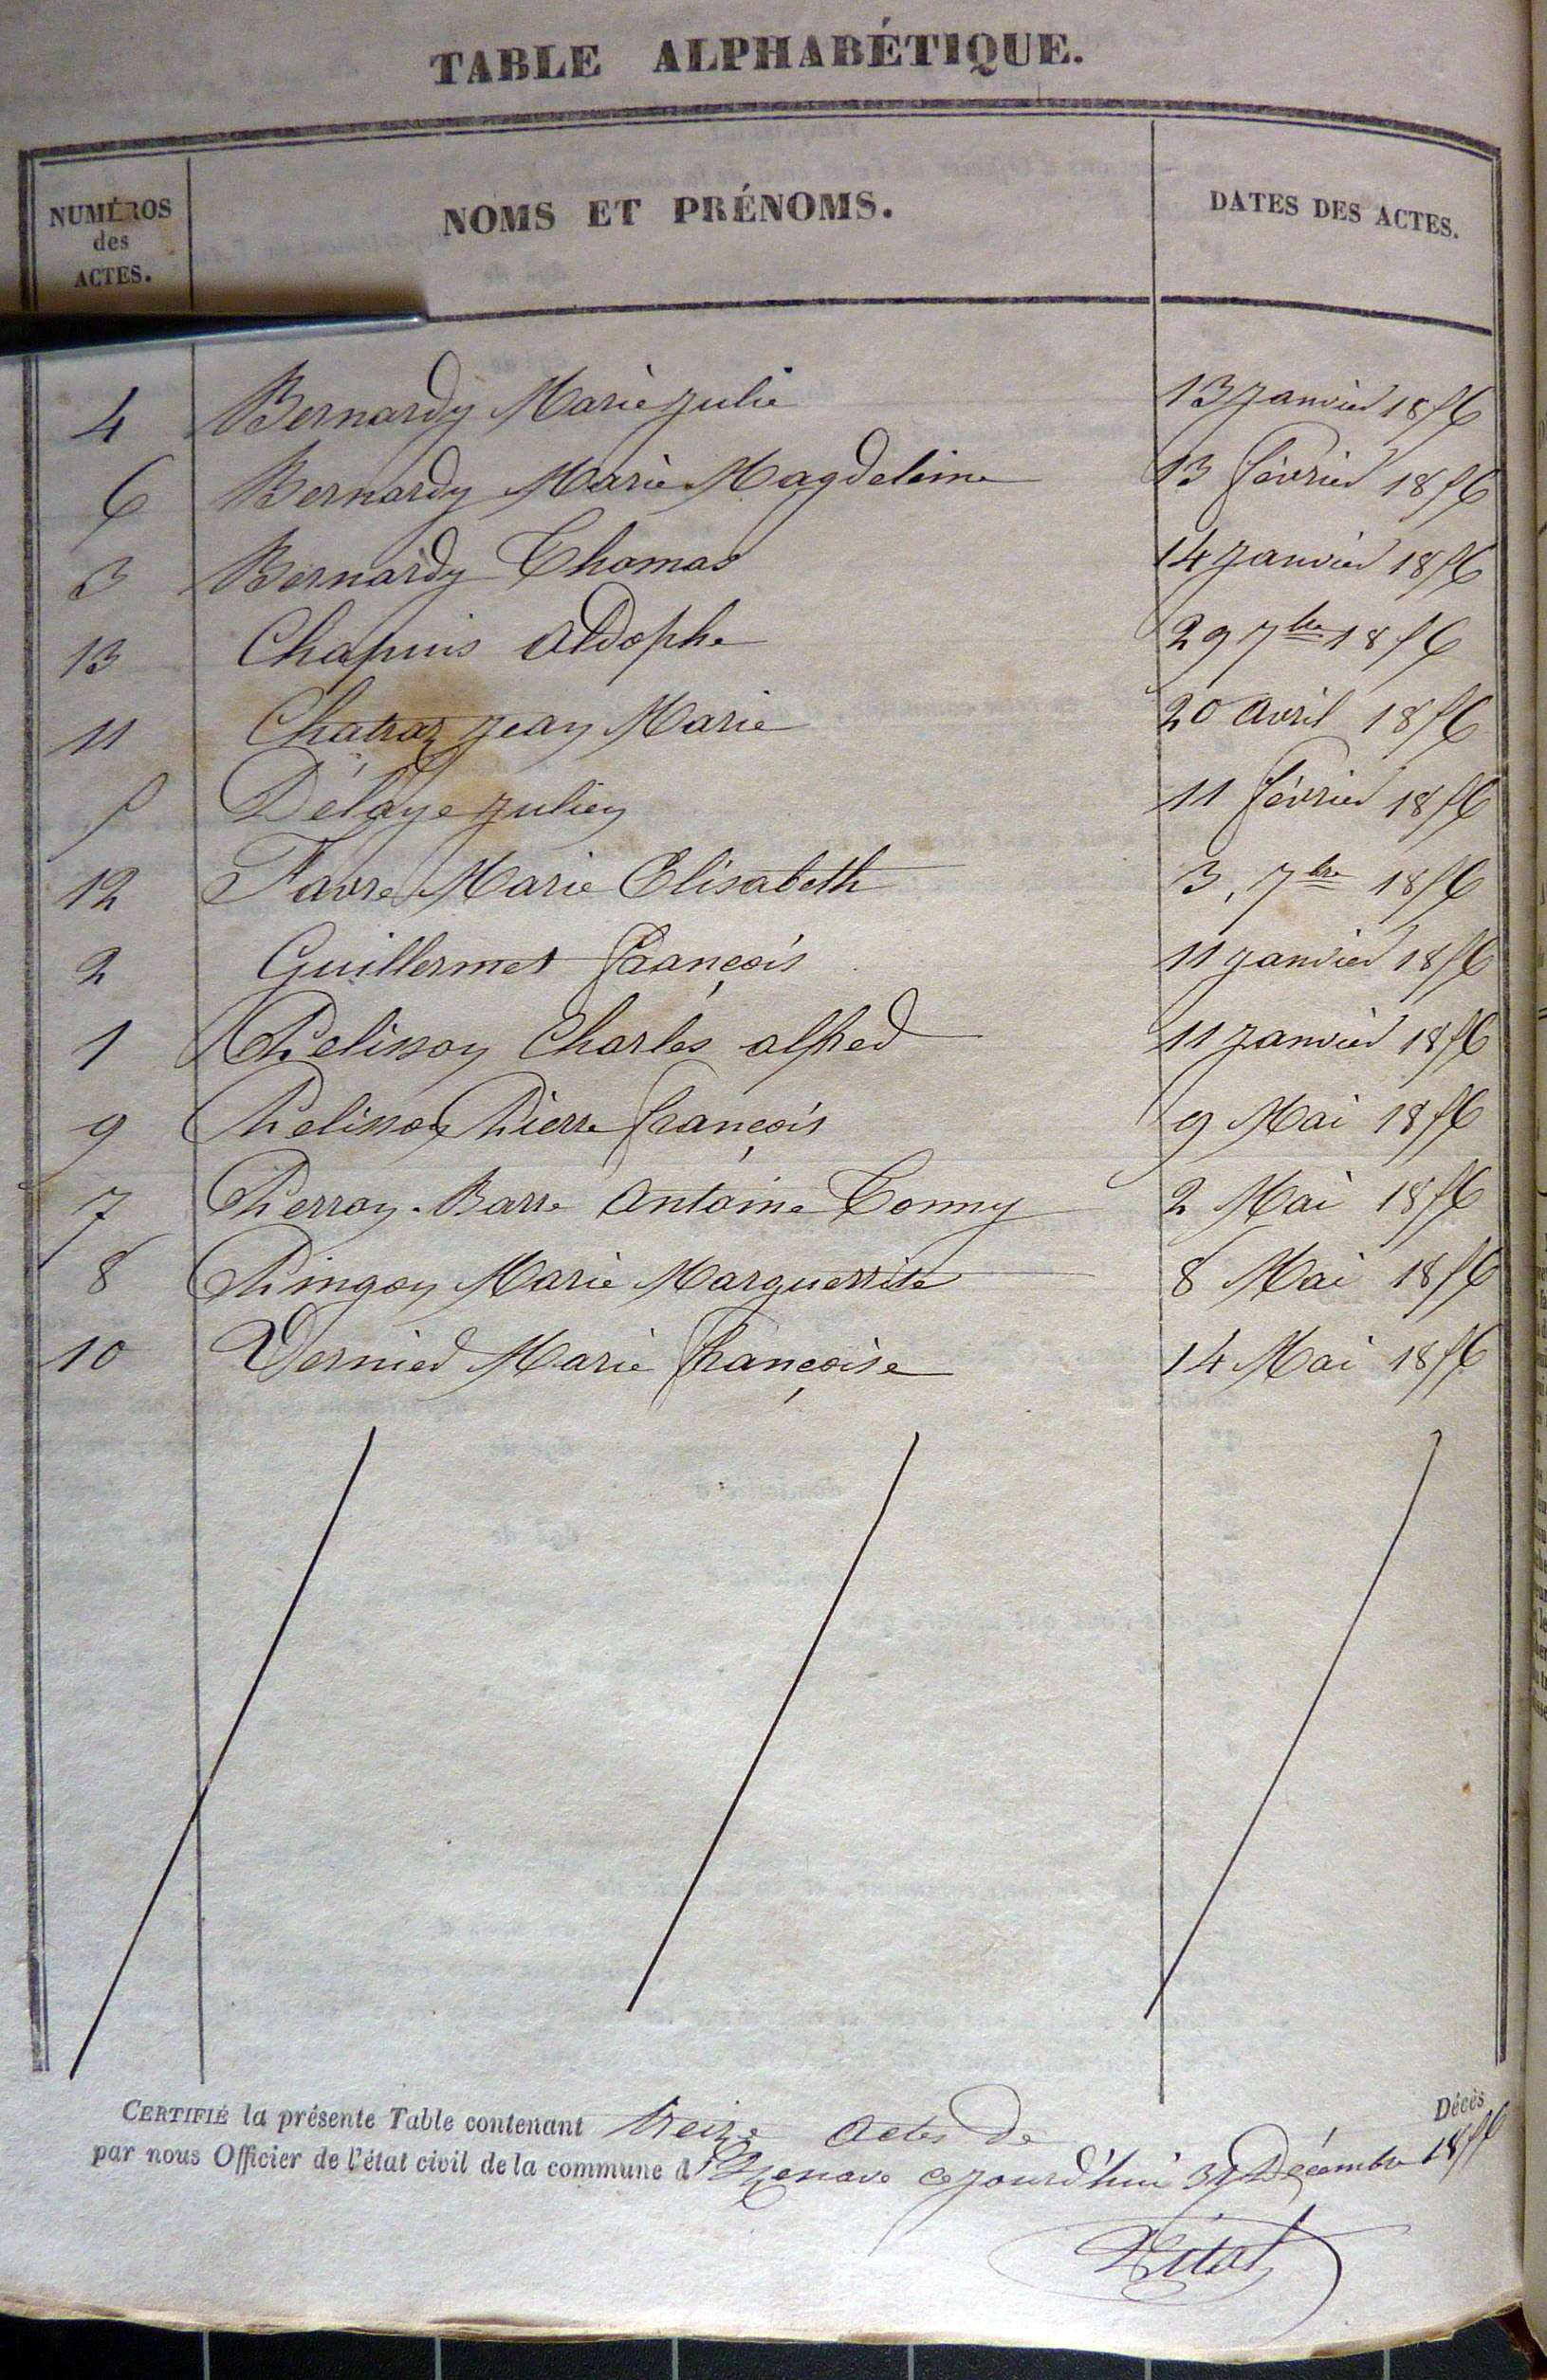 TABLE ALPHABÉTIQUE.
NUMÉROS des ACTES. NOMS ET PRÉNOMS. DATES DES ACTES.
4 Bernardy Marie Julie 13 Janvier 1856
6 Bernardy Marie Magdeleine 13 février 1856
3 Bernardy Thomas 14 Janvier 1856
13 Chapuis Aldophe 29 7bre 1856
11 Chatraz Jean Marie 20 avril 1856
5 Délaye Julien 11 février 1856
12 Favre Marie Elisabeth 3, 7bre 1856
2 Guillermet françois 11 Janvier 1856
1 Pelisson Charles alfred 11 Janvier 1856
9 Pelisson Pierre françois 9 Mai 1856
7 Perroy-Barre Antoine Tonny 2 Mai 1856
8 Pingon Marie Marguerite 8 Mai 1856
10 Vernier Marie françoise 14 Mai 1856
CERTIFIÉ la présente Table contenant treize actes de Décès
par nous Officier de l'état civil de la commune d ce jourd'hui 31 Décembre 1856